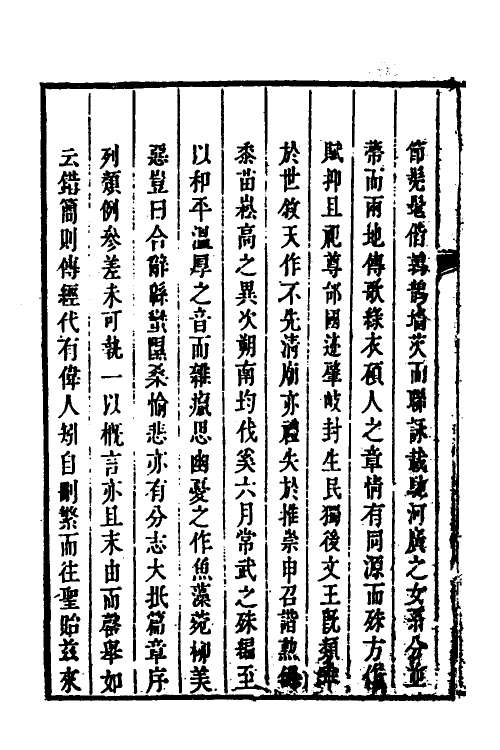 節髦髦偕鶉鵲墻茨而聯詠載馳河廣之女
蒂而兩地傳歌綠衣碩人之章情有同源而殊方
賦抑且祀尊郃國迹肇岐封生民獨後文王旣類
於世敘天作不先清廟亦禮失於推崇申召諧勲
黍苗崧高之異次朔南均伐奚六月常武之殊編至
以和平溫厚之音而雜瘨思幽憂之作魚藻菀柳美
惡豈曰合辭緜蠻隰桑愉悲亦有分志大抵篇章序
列類例參差未可執一以概言亦且末由而罄舉如
云錯簡則傳經代有偉人矧自刪繁而往聖貽茲來